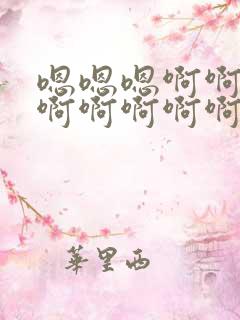 嗯嗯嗯啊啊
啊啊啊啊啊
華里西